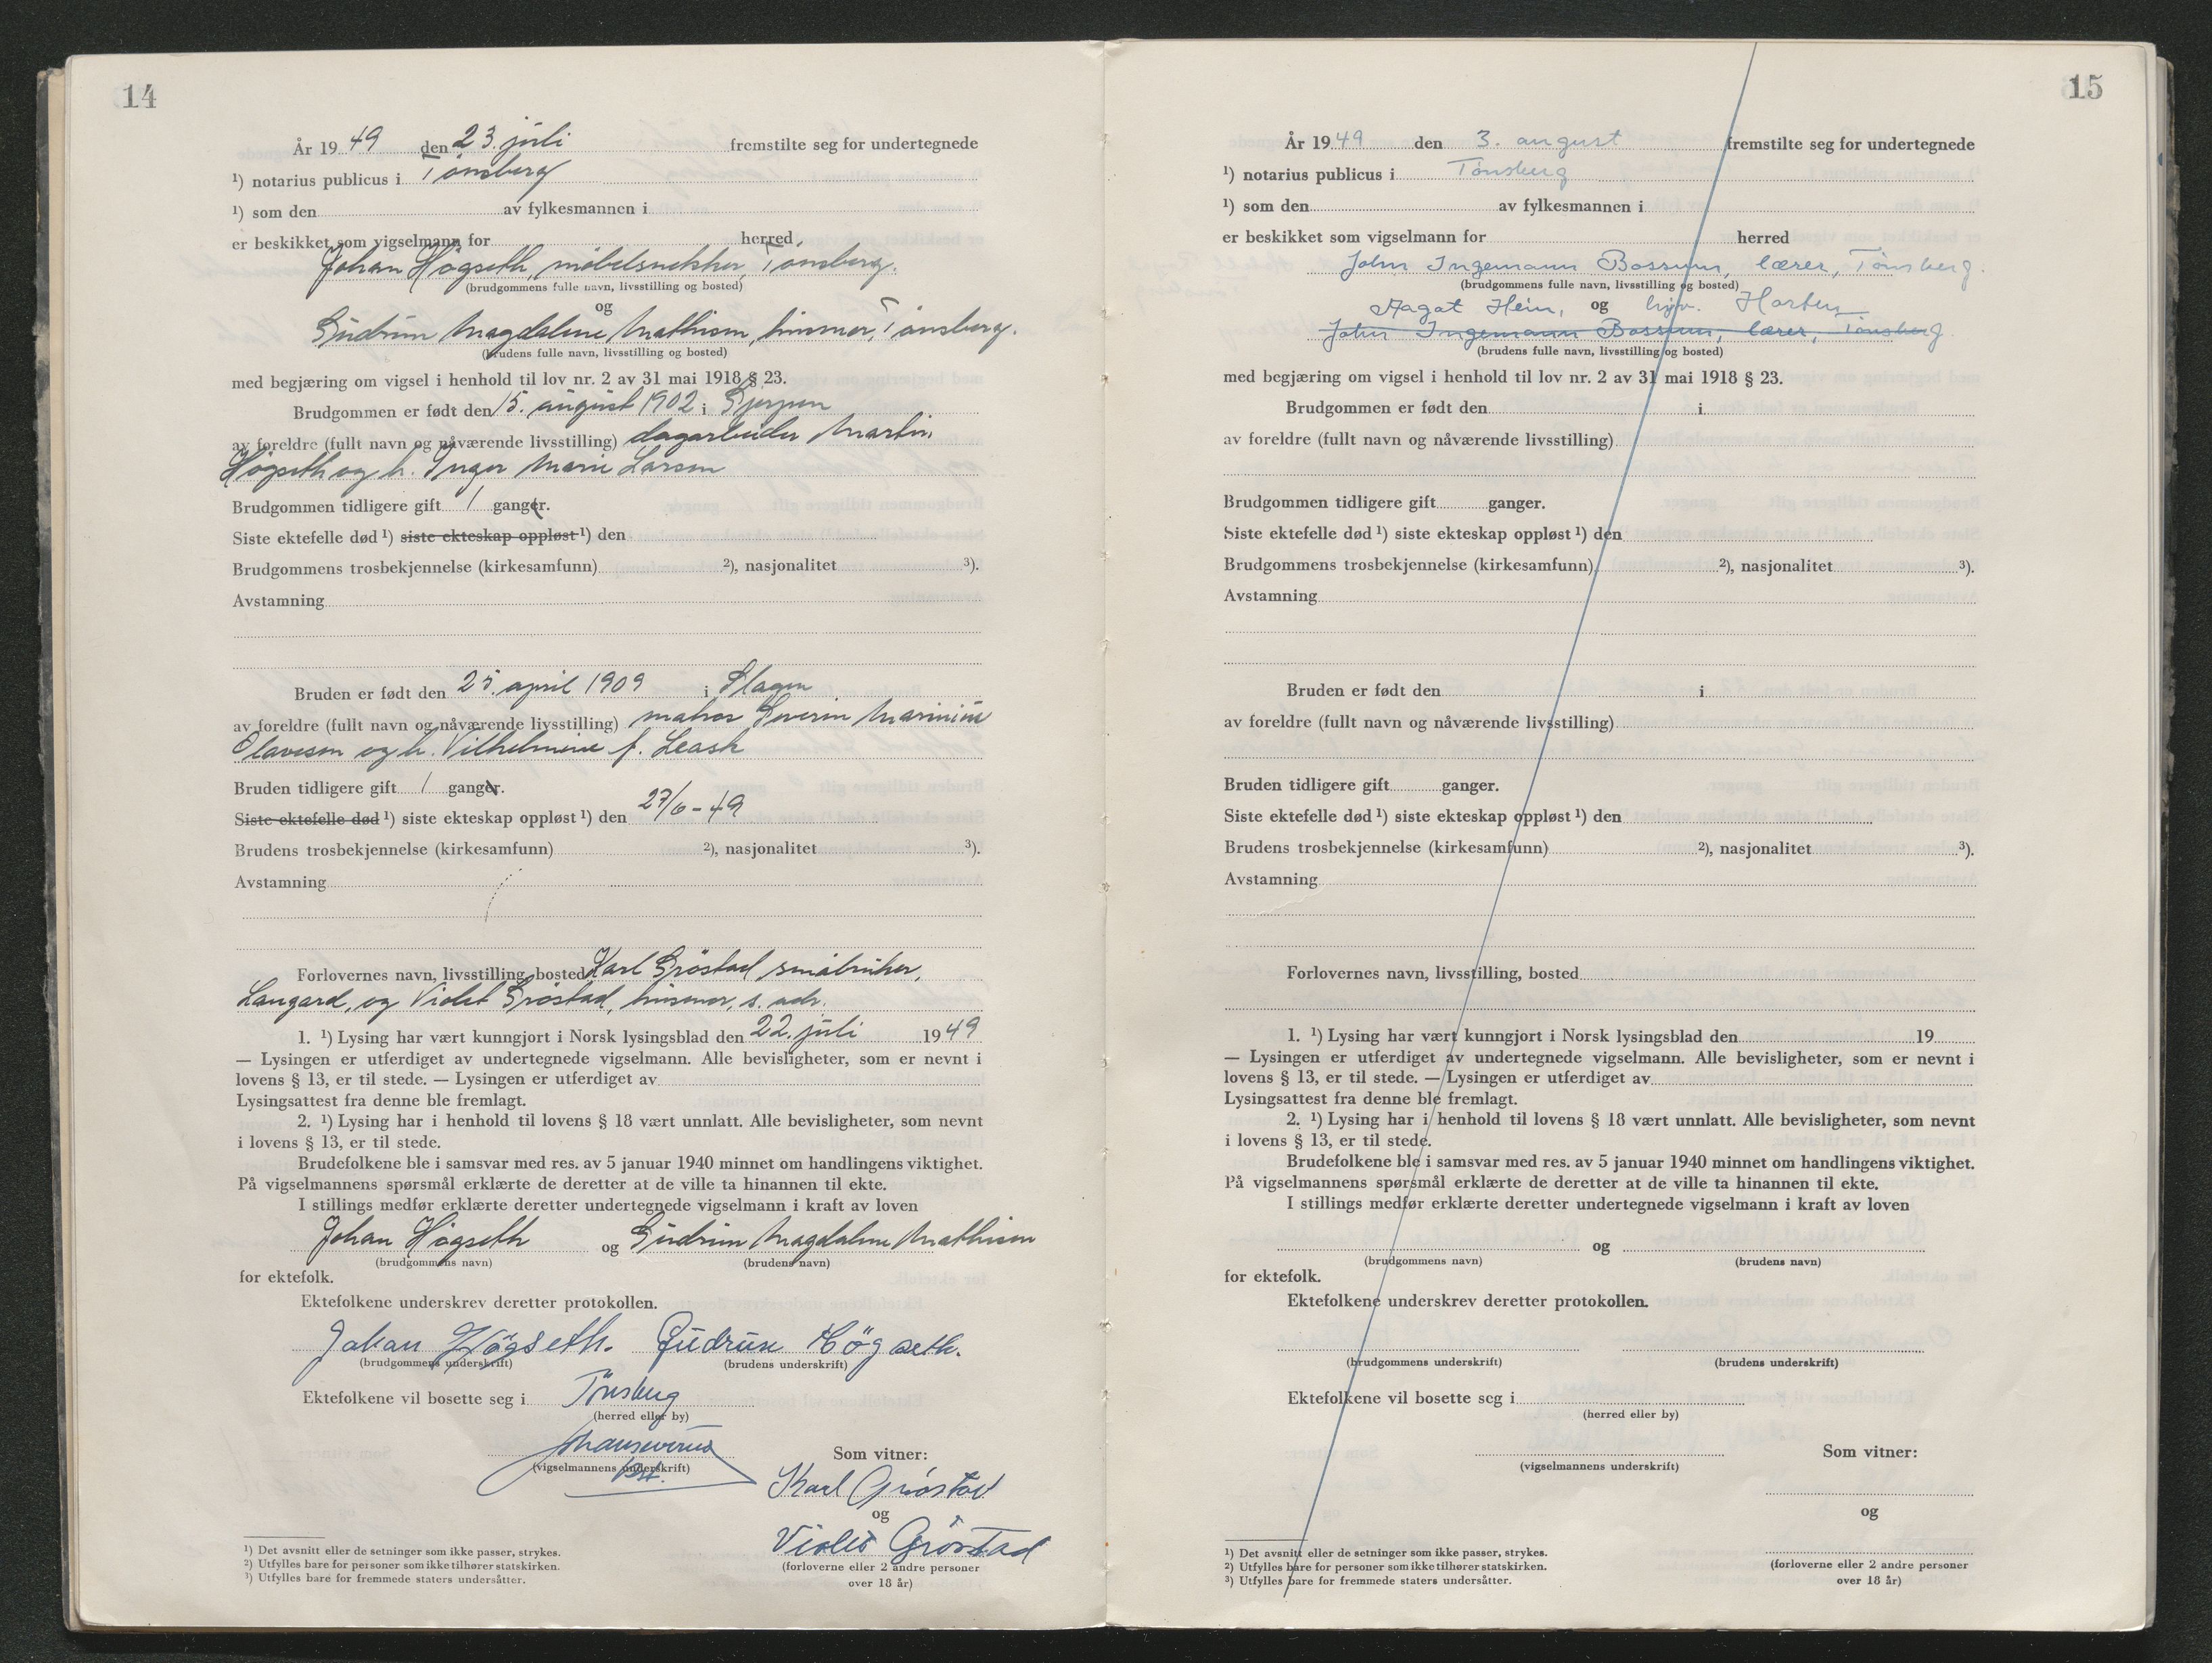 14
År 1949 den 23. juli fremstilte seg for undertegnede
¹) notarius publicus i Tønsberg
¹) som den av fylkesmannen i
er beskikket som vigselmann for herred
Johan Högseth, møbelsnekker, Tønsberg.
(brudgommens fulle navn, livsstilling og bosted)
og
Gudrun Magdalene Mathisen, husmor, Tønsberg.
(brudens fulle navn, livsstilling og bosted)
med begjæring om vigsel i henhold til lov nr. 2 av 31 mai 1918 § 23.
Brudgommen er født den 15. august 1902 i Gjerpen
av foreldre (fullt navn og nåværende livsstilling) dagarbeider Martin
Högseth og h. Inger Marie Larsen
Brudgommen tidligere gift 1 ganger.
Siste ektefelle død ¹) siste ekteskap oppløst ¹) den
Brudgommens trosbekjennelse (kirkesamfunn) ²), nasjonalitet ³).
Avstamning
Bruden er født den 25. april 1909 i Slagen
av foreldre (fullt navn og nåværende livsstilling) matros Severin Marinius
Olavesen og h. Vilhelmine f. Leash
Bruden tidligere gift 1 ganger.
Siste ektefelle død ¹) siste ekteskap oppløst ¹) den 27/6-49
Brudens trosbekjennelse (kirkesamfunn) ²), nasjonalitet ³).
Avstamning
Forlovernes navn, livsstilling, bosted Karl Gröstad småbruker,
Langard, og Violet Gröstad, husmor, s. adr.
1. ¹) Lysing har vært kunngjort i Norsk lysingsblad den 22. juli 1949
— Lysingen er utferdiget av undertegnede vigselmann. Alle bevisligheter, som er nevnt i
lovens § 13, er til stede. — Lysingen er utferdiget av
Lysingsattest fra denne ble fremlagt.
2. ¹) Lysing har i henhold til lovens § 18 vært unnlatt. Alle bevisligheter, som nevnt
i lovens § 13, er til stede.
Brudefolkene ble i samsvar med res. av 5 januar 1940 minnet om handlingens viktighet.
På vigselmannens spørsmål erklærte de deretter at de ville ta hinannen til ekte.
I stillings medfør erklærte deretter undertegnede vigselmann i kraft av loven
Johan Högseth og Gudrun Magdalene Mathisen
(brudgommens navn) (brudens navn)
for ektefolk.
Ektefolkene underskrev deretter protokollen.
Johan Högseth. Gudrun Högseth.
(brudgommens underskrift) (brudens underskrift)
Ektefolkene vil bosette seg i Tønsberg
(herred eller by)
Som vitner:
(vigselmannens underskrift)
Karl Gröstad
og
Violet Gröstad
(forloverne eller 2 andre personer
over 18 år)
¹) Det avsnitt eller de setninger som ikke passer, strykes.
²) Utfylles bare for personer som ikke tilhører statskirken.
³) Utfylles bare for fremmede staters undersåtter.
15
År 1949 den 3. august fremstilte seg for undertegnede
¹) notarius publicus i Tønsberg
¹) som den av fylkesmannen i
er beskikket som vigselmann for herred
John Ingemann Bossum, lærer, Tønsberg.
(brudgommens fulle navn, livsstilling og bosted)
Aagot Hein, og hjv. Horten
John Ingemann Bossum, lærer, Tønsberg
(brudens fulle navn, livsstilling og bosted)
med begjæring om vigsel i henhold til lov nr. 2 av 31 mai 1918 § 23.
Brudgommen er født den i
av foreldre (fullt navn og nåværende livsstilling)
Brudgommen tidligere gift ganger.
Siste ektefelle død ¹) siste ekteskap oppløst ¹) den
Brudgommens trosbekjennelse (kirkesamfunn) ²), nasjonalitet ³).
Avstamning
Bruden er født den i
av foreldre (fullt navn og nåværende livsstilling)
Bruden tidligere gift ganger.
Siste ektefelle død ¹) siste ekteskap oppløst ¹) den
Brudens trosbekjennelse (kirkesamfunn) ²), nasjonalitet ³).
Avstamning
Forlovernes navn, livsstilling, bosted
1. ¹) Lysing har vært kunngjort i Norsk lysingsblad den 19
— Lysingen er utferdiget av undertegnede vigselmann. Alle bevisligheter, som er nevnt i
lovens § 13, er til stede. — Lysingen er utferdiget av
Lysingsattest fra denne ble fremlagt.
2. ¹) Lysing har i henhold til lovens § 18 vært unnlatt. Alle bevisligheter, som nevnt
i lovens § 13, er til stede.
Brudefolkene ble i samsvar med res. av 5 januar 1940 minnet om handlingens viktighet.
På vigselmannens spørsmål erklærte de deretter at de ville ta hinannen til ekte.
I stillings medfør erklærte deretter undertegnede vigselmann i kraft av loven
og
(brudgommens navn) (brudens navn)
for ektefolk.
Ektefolkene underskrev deretter protokollen.
(brudgommens underskrift) (brudens underskrift)
Ektefolkene vil bosette seg i
(herred eller by)
Som vitner:
(vigselmannens underskrift)
og
(forloverne eller 2 andre personer
over 18 år)
¹) Det avsnitt eller de setninger som ikke passer, strykes.
²) Utfylles bare for personer som ikke tilhører statskirken.
³) Utfylles bare for fremmede staters undersåtter.